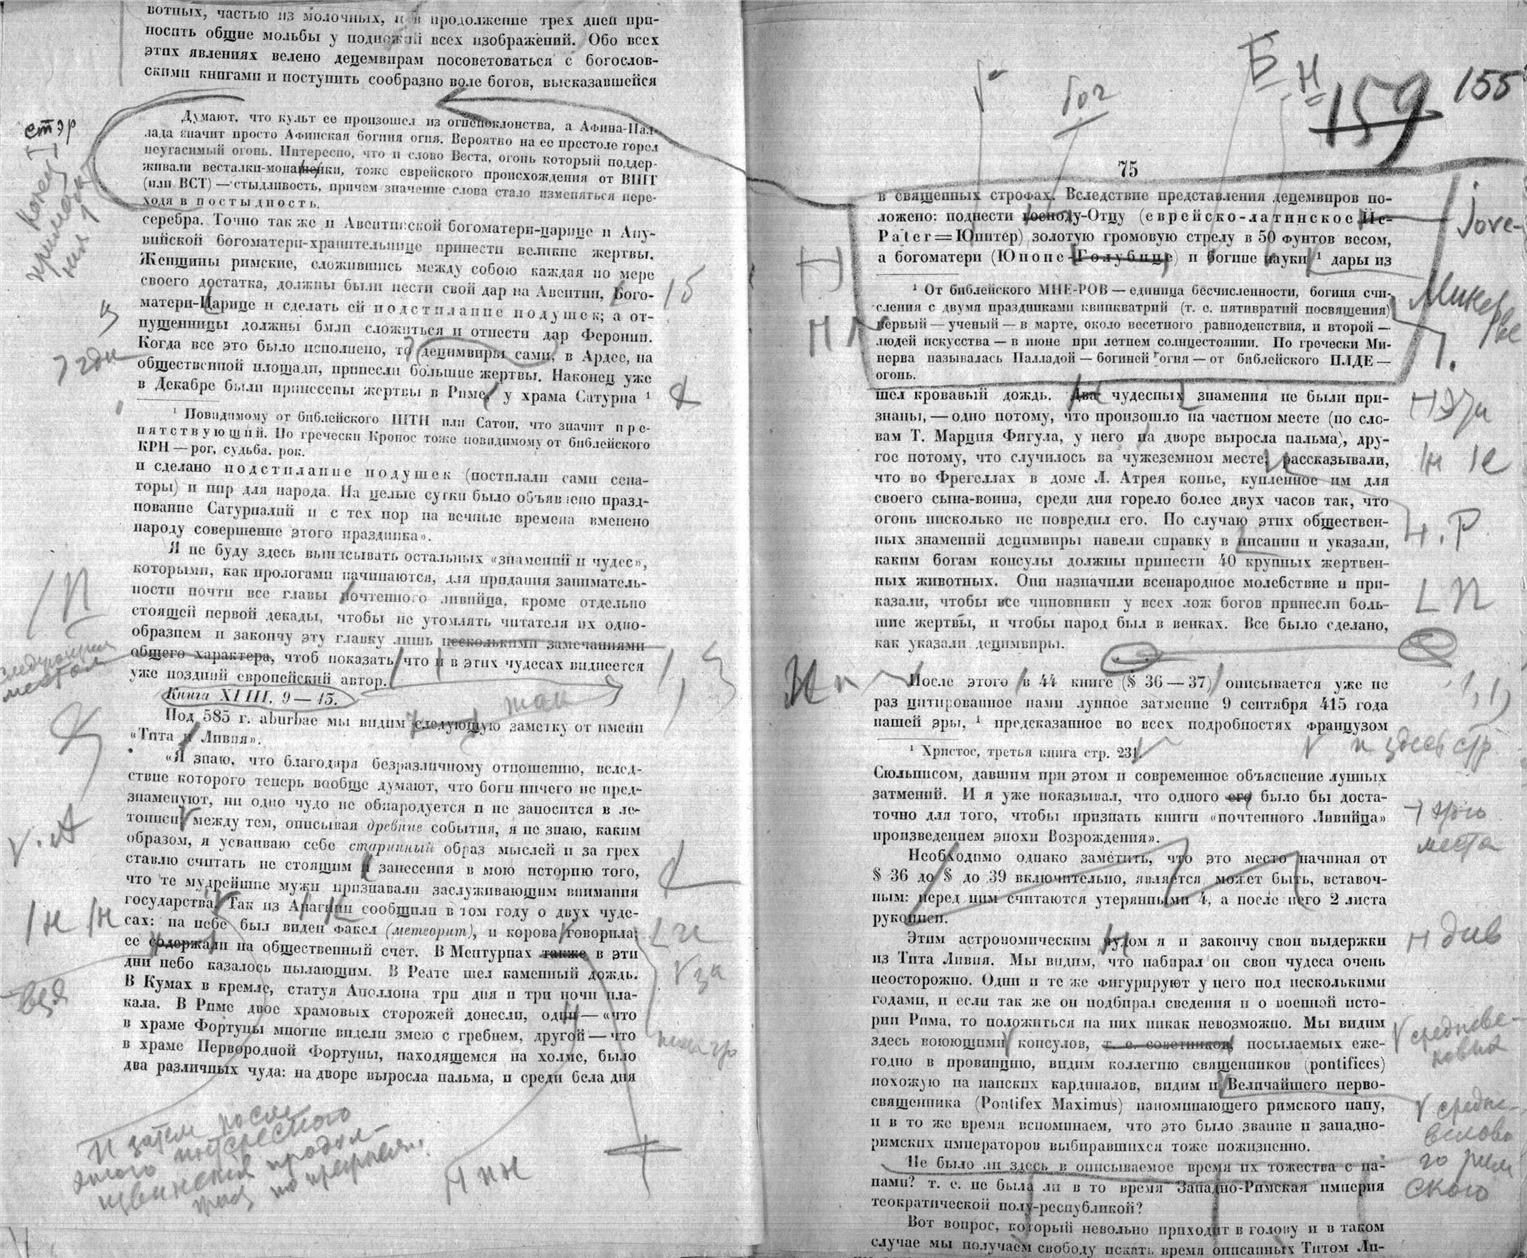 вотных, частью из молочных, и в продолжение трех дней при-
носить общие мольбы у подножий всех изображений. Обо всех
этих явлениях велено децемвирам посоветоваться с богослов-
скими книгами и поступить сообразно воле богов, высказавшейся
Думают, что культ ее произошел из огнепоклонства, а Афина-Пал-
лада значит просто Афинская богиня огня. Вероятно на ее престоле горел
неугасимый огонь. Интересно, что и слово Веста, огонь который поддер-
живали весталки-монашенки, тоже еврейского происхождения от ВШТ
(или ВСТ) — стыдливость, причем значение слова стало изменяться пере-
ходя в постыдность.
стэр
Конец
примеча
ния 1
серебра. Точно так же и Авентинской богоматери-царице и Ану-
вийской богоматери-хранительнице принести великие жертвы.
Женщины римские, сложившись между собою каждая по мере
своего достатка, должны были нести свой дар на Авентин, Бого-
матери-Царице и сделать ей подстилание подушек; а от-
пущенницы должны были сложиться и отнести дар Феронии.
Когда все это было исполнено, то децимвиры сами, в Ардее, на
общественной площади, принесли большие жертвы. Наконец уже
в Декабре были принесены жертвы в Риме, у храма Сатурна ¹
¹ Повидимому от библейского ШТН или Сатон, что значит пре-
пятствующий. По гречески Кронос тоже повидимому от библейского
КРН — рог, судьба, рок.
и сделано подстилание подушек (постилали сами сена-
торы) и пир для народа. На целые сутки было объявлено празд-
нование Сатурналий и с тех пор на вечные времена вменено
народу совершение этого праздника».
Я не буду здесь выписывать остальных «знамений и чудес»,
которыми, как прологами начинаются, для придания заниматель-
ности почти все главы почтенного ливийца, кроме отдельно
стоящей первой декады, чтобы не утомлять читателя их одно-
образием и закончу эту главку лишь несколькими замечаниями
общего характера, чтоб показать что и в этих чудесах виднеется
уже поздний европейский автор.
Книга XLIII. 9—13.
Под 585 г. aburbae мы видим следующую заметку от имени
«Тита и Ливия».
«Я знаю, что благодаря безразличному отношению, вслед-
ствие которого теперь вообще думают, что боги ничего не пред-
знаменуют, ни одно чудо не обнародуется и не заносится в ле-
тописи между тем, описывая древние события, я не знаю, каким
образом, я усваиваю себе старинный образ мыслей и за грех
ставлю считать не стоящим и занесения в мою историю того,
что те мудрейшие мужи признавали заслуживающим внимания
государства. Так из Анагнии сообщили в том году о двух чуде-
сах: на небе был виден факел (метеорит), и корова говорила;
ее содержали на общественный счет. В Ментурнах также в эти
дни небо казалось пылающим. В Реате шел каменный дождь.
В Кумах в кремле, статуя Аполлона три дня и три ночи пла-
кала. В Риме двое храмовых сторожей донесли, один — «что
в храме Фортуны многие видели змею с гребнем, другой — что
в храме Первородной Фортуны, находящемся на холме, было
два различных чуда: на дворе выросла пальма, и среди бела дня
И затем после
этого интересного
Б.Н
159 155
75
в священных строфах. Вследствие представления децемвиров по-
ложено: поднести господу-Отцу (еврейско-латинское Ие-
Pater=Юпитер) золотую громовую стрелу в 50 фунтов весом,
а богоматери (Юноне-Голубице) и богине науки ¹ дары из
¹ От библейского МНЕ-РОВ — единица бесчисленности, богиня счи-
сления с двумя праздниками квинкватрий (т. е. пятикратий посвящения)
первый — ученый — в марте, около весетного равноденствия, и второй —
людей искусства — в июне при летнем солнцестоянии. По гречески Ми-
нерва называлась Палладой — богиней огня — от библейского ПЛДЕ —
огонь.
шел кровавый дождь. Два чудесных знамения не были при-
знаны, — одно потому, что произошло на частном месте (по сло-
вам Т. Марция Фигула, у него на дворе выросла пальма), дру-
гое потому, что случилось ва чужеземном месте; рассказывали,
что во Фрегеллах в доме Л. Атрея копье, купленное им для
своего сына-воина, среди дня горело более двух часов так, что
огонь нисколько не повредил его. По случаю этих обществен-
ных знамений децимвиры навели справку в писании и указали,
каким богам консулы должны принести 40 крупных жертвен-
ных животных. Они назначили всенародное молебствие и при-
казали, чтобы все чиновники у всех лож богов принесли боль-
шие жертвы, и чтобы народ был в венках. Все было сделано,
как указали децимвиры.
После этого в 44 книге (§ 36—37) описывается уже не
раз цитированное нами лунное затмение 9 сентября 415 года
нашей эры, ¹ предсказанное во всех подробностях французом
¹ Христос, третья книга стр. 231.
Сюльписом, давшим при этом и современное объяснение лунных
затмений. И я уже показывал, что одного его было бы доста-
точно для того, чтобы признать книги «почтенного Ливийца»
произведением эпохи Возрождения».
Необходимо однако заметить, что это место начиная от
§ 36 до § до 39 включительно, является может быть, вставоч-
ным: перед ним считаются утерянными 4, а после него 2 листа
рукописи.
Этим астрономическим чудом я и закончу свои выдержки
из Тита Ливия. Мы видим, что набирал он свои чудеса очень
неосторожно. Одни и те же фигурируют у него под несколькими
годами, и если так же он подбирал сведения и о военной исто-
рии Рима, то положиться на них никак невозможно. Мы видим
здесь воюющими консулов, т. е. советников посылаемых еже-
годно в провинцию, видим коллегию священников (pontifices)
похожую на папских кардиналов, видим и Величайшего перво-
священника (Pontifex Maximus) напоминающего римского папу,
и в то же время вспоминаем, что это было звание и западно-
римских императоров выбиравшихся тоже пожизненно.
Не было ли здесь в описываемое время их тожества с па-
пами? т. е. не была ли в то время Западно-Римская империя
теократической полу-республикой?
Вот вопрос, который невольно приходит в голову и в таком
случае мы получаем свободу искать время описанных Титом Ли-
Jove-
и здесь стр
этого
места
див
средневе-
ковых
средне-
веково
го рим
ского